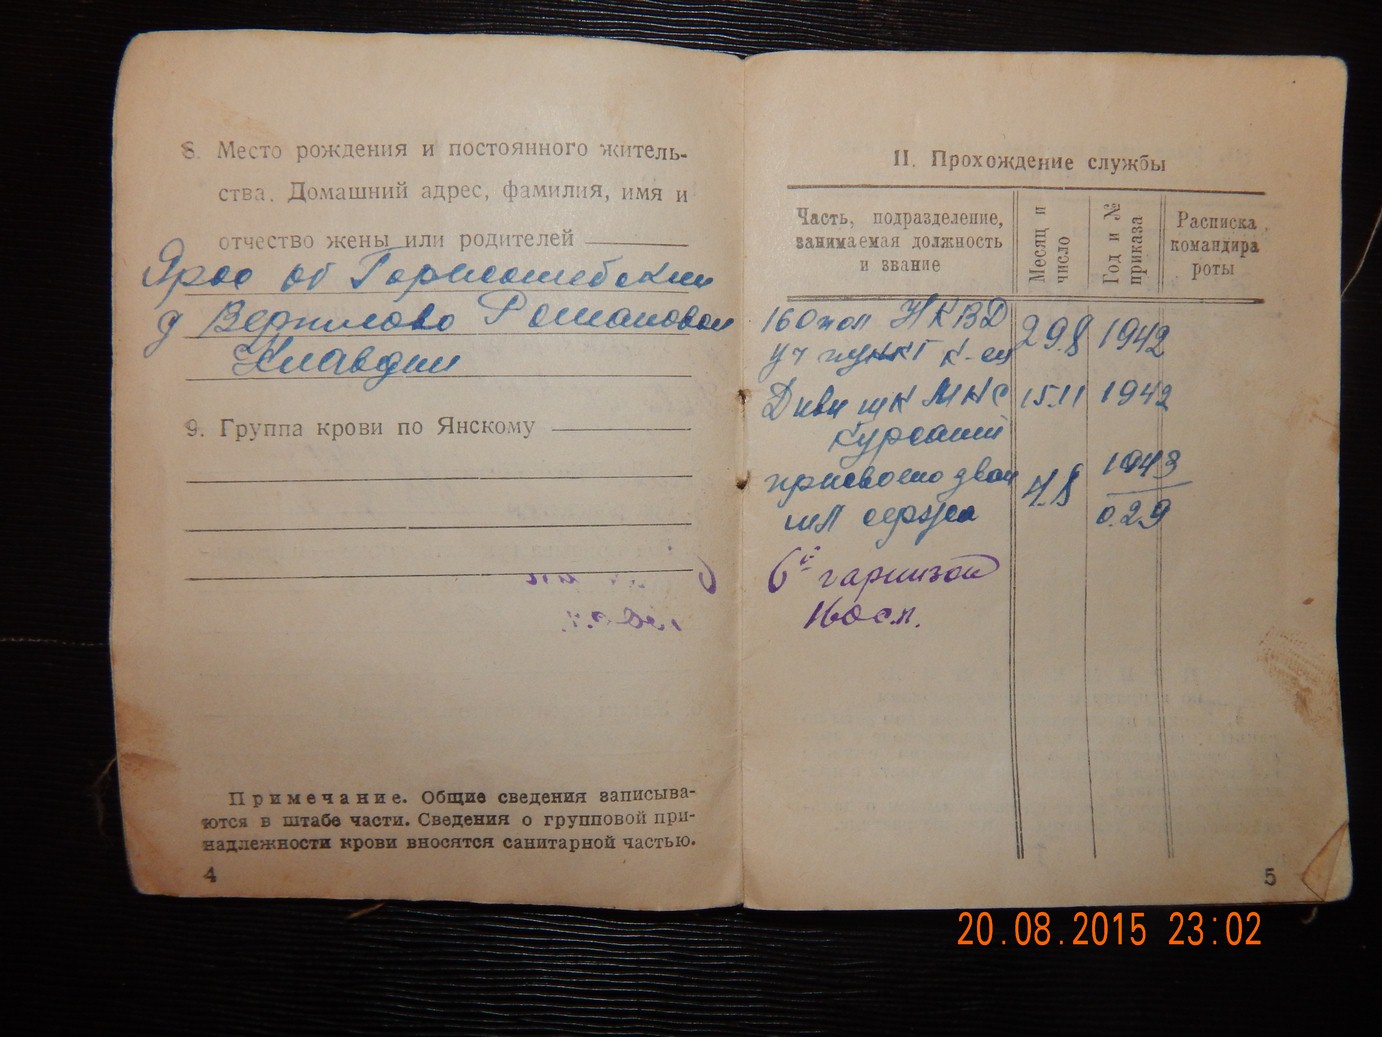 8. Место рождения и постоянного житель-
ства. Домашний адрес, фамилия, имя и
отчество жены или родителей
Яросл об
д Романовой
Клавдии
9. Группа крови по Янскому
Примечание. Общие сведения записыва-
ются в штабе части. Сведения о групповой при-
надлежности крови вносятся санитарной частью.
4
II. Прохождение службы
Часть, подразделение,
занимаемая должность
и звание
Месяц и
число
Год и №
приказа
Расписка
командира
роты
160 пол НКВД
уч пункт к-ец
29.8 1942
Диви шк МНС
15.11 1942
Курсант
присвоено зван
мл сержа
4.8
1943
029
6й гарнизон
160 с.п.
5
20.08.2015 23:02